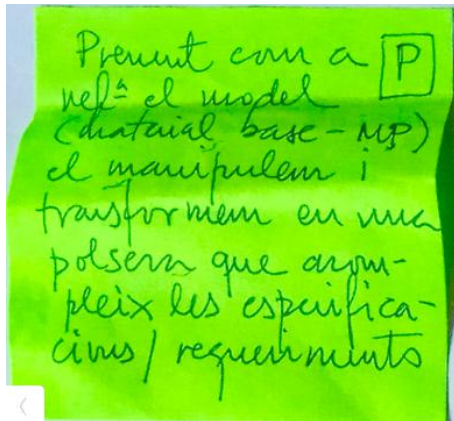 Prenent com a P
refª el model
(material base - MP)
el manipulem i
transformem en una
polsera que acom-
pleix les especifica-
cions / requeriments